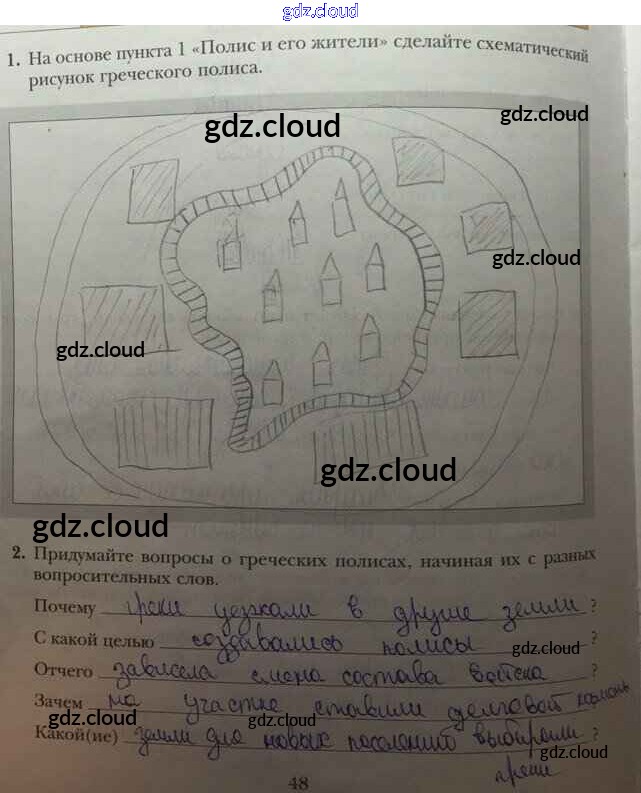 gdz.cloud
1. На основе пункта 1 «Полис и его жители» сделайте схематический
рисунок греческого полиса.
gdz.cloud
gdz.cloud
gdz.cloud
gdz.cloud
gdz.cloud
gdz.cloud
2. Придумайте вопросы о греческих полисах, начиная их с разных
вопросительных слов.
Почему греки уезжали в другие земли ?
С какой целью создавались полисы ?
gdz.cloud
Отчего зависела смена состава войска ?
Зачем на участке ставили долговой камень
gdz.cloud
gdz.cloud
Какой(ие) земли для новых поселений выбирали ?
греки
gdz.cloud
48